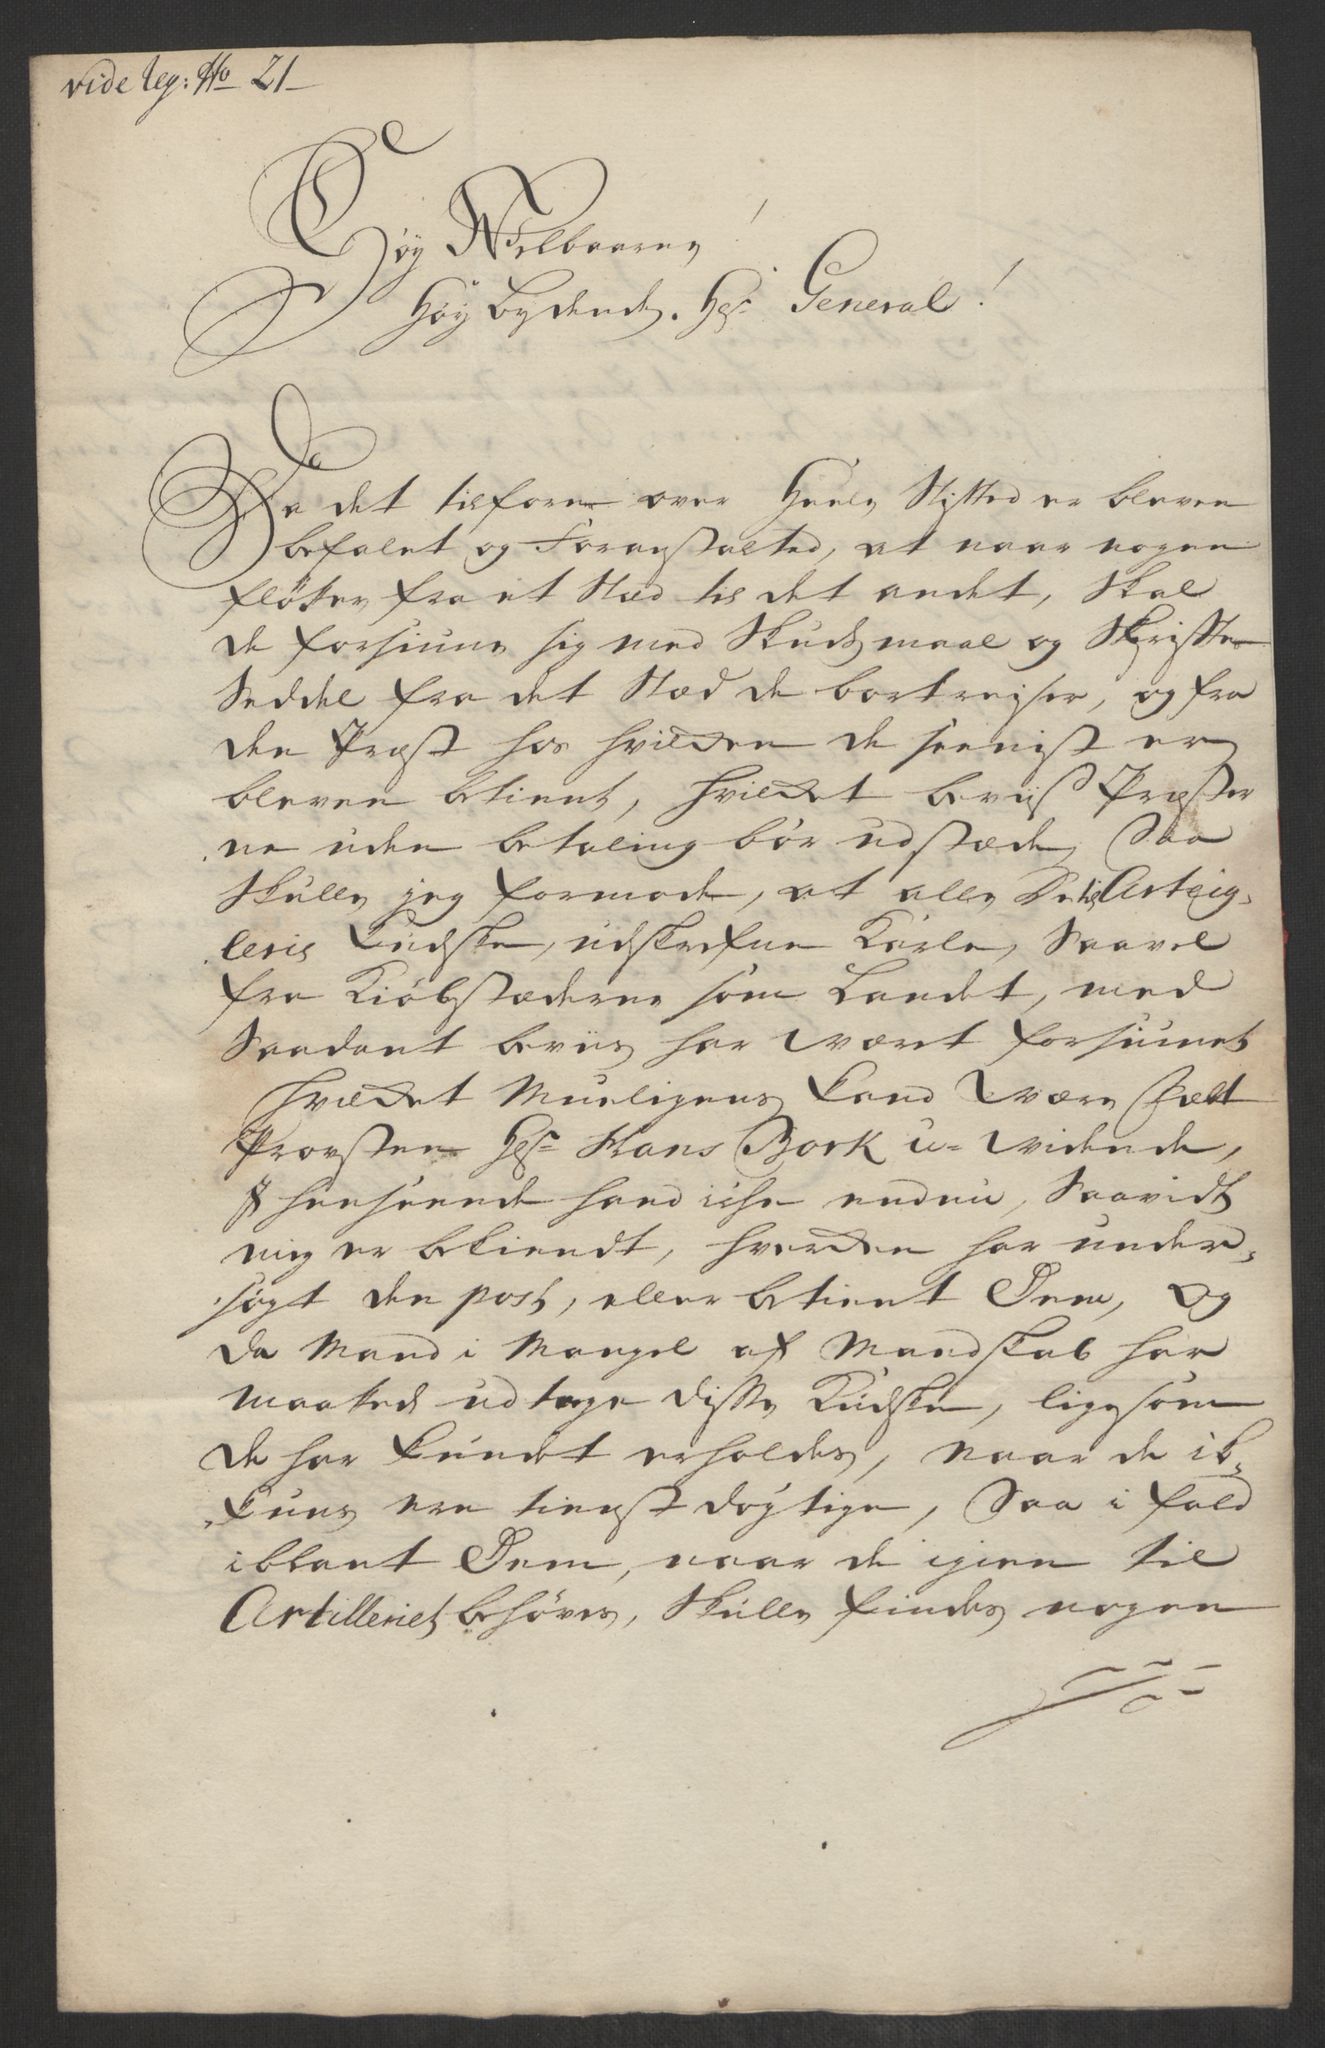 vide reg: No 21
Høy Welbaarne!
Høy bydende Hr General!
Da det tilforn over heele Stifted er bleven
befalet og Foranstalted, at naar nogen
fløtter fra et Stæd til det andet, Skal
de forsiune sig med Skudsmaal og Skrifte
Seddel fra det Stæd de bortreiser, og fra
den Præst hos hvilken de seenist er
bleven betient, hvilket beviis Præster
ne uden betaling bør udstæde, Saa
Skulle jeg formode, at alle Artig-
leris Kudske, udskrefne Karle, Saavel
fra Kiøbstæderne som Landet, med
Saadant beviis har været forsiunet
hvilket Mueligens kand være Felt
Provsten Hr Hans Bork u-vidende,
I henseende hand iche endnu, Saavidt
mig er bekiendt, hverken har under-
søgt den post, eller betient Dem, Og
da Mand i Mangel af Mandskab har
maatted udtage disse Kudske, ligesom
de har kundet erholdes, naar de ik-
kuns ere tienst dygtige, Saa i fald
iblant Dem, naar de igien til
Artilleriet behøves, Skulle findes nogen